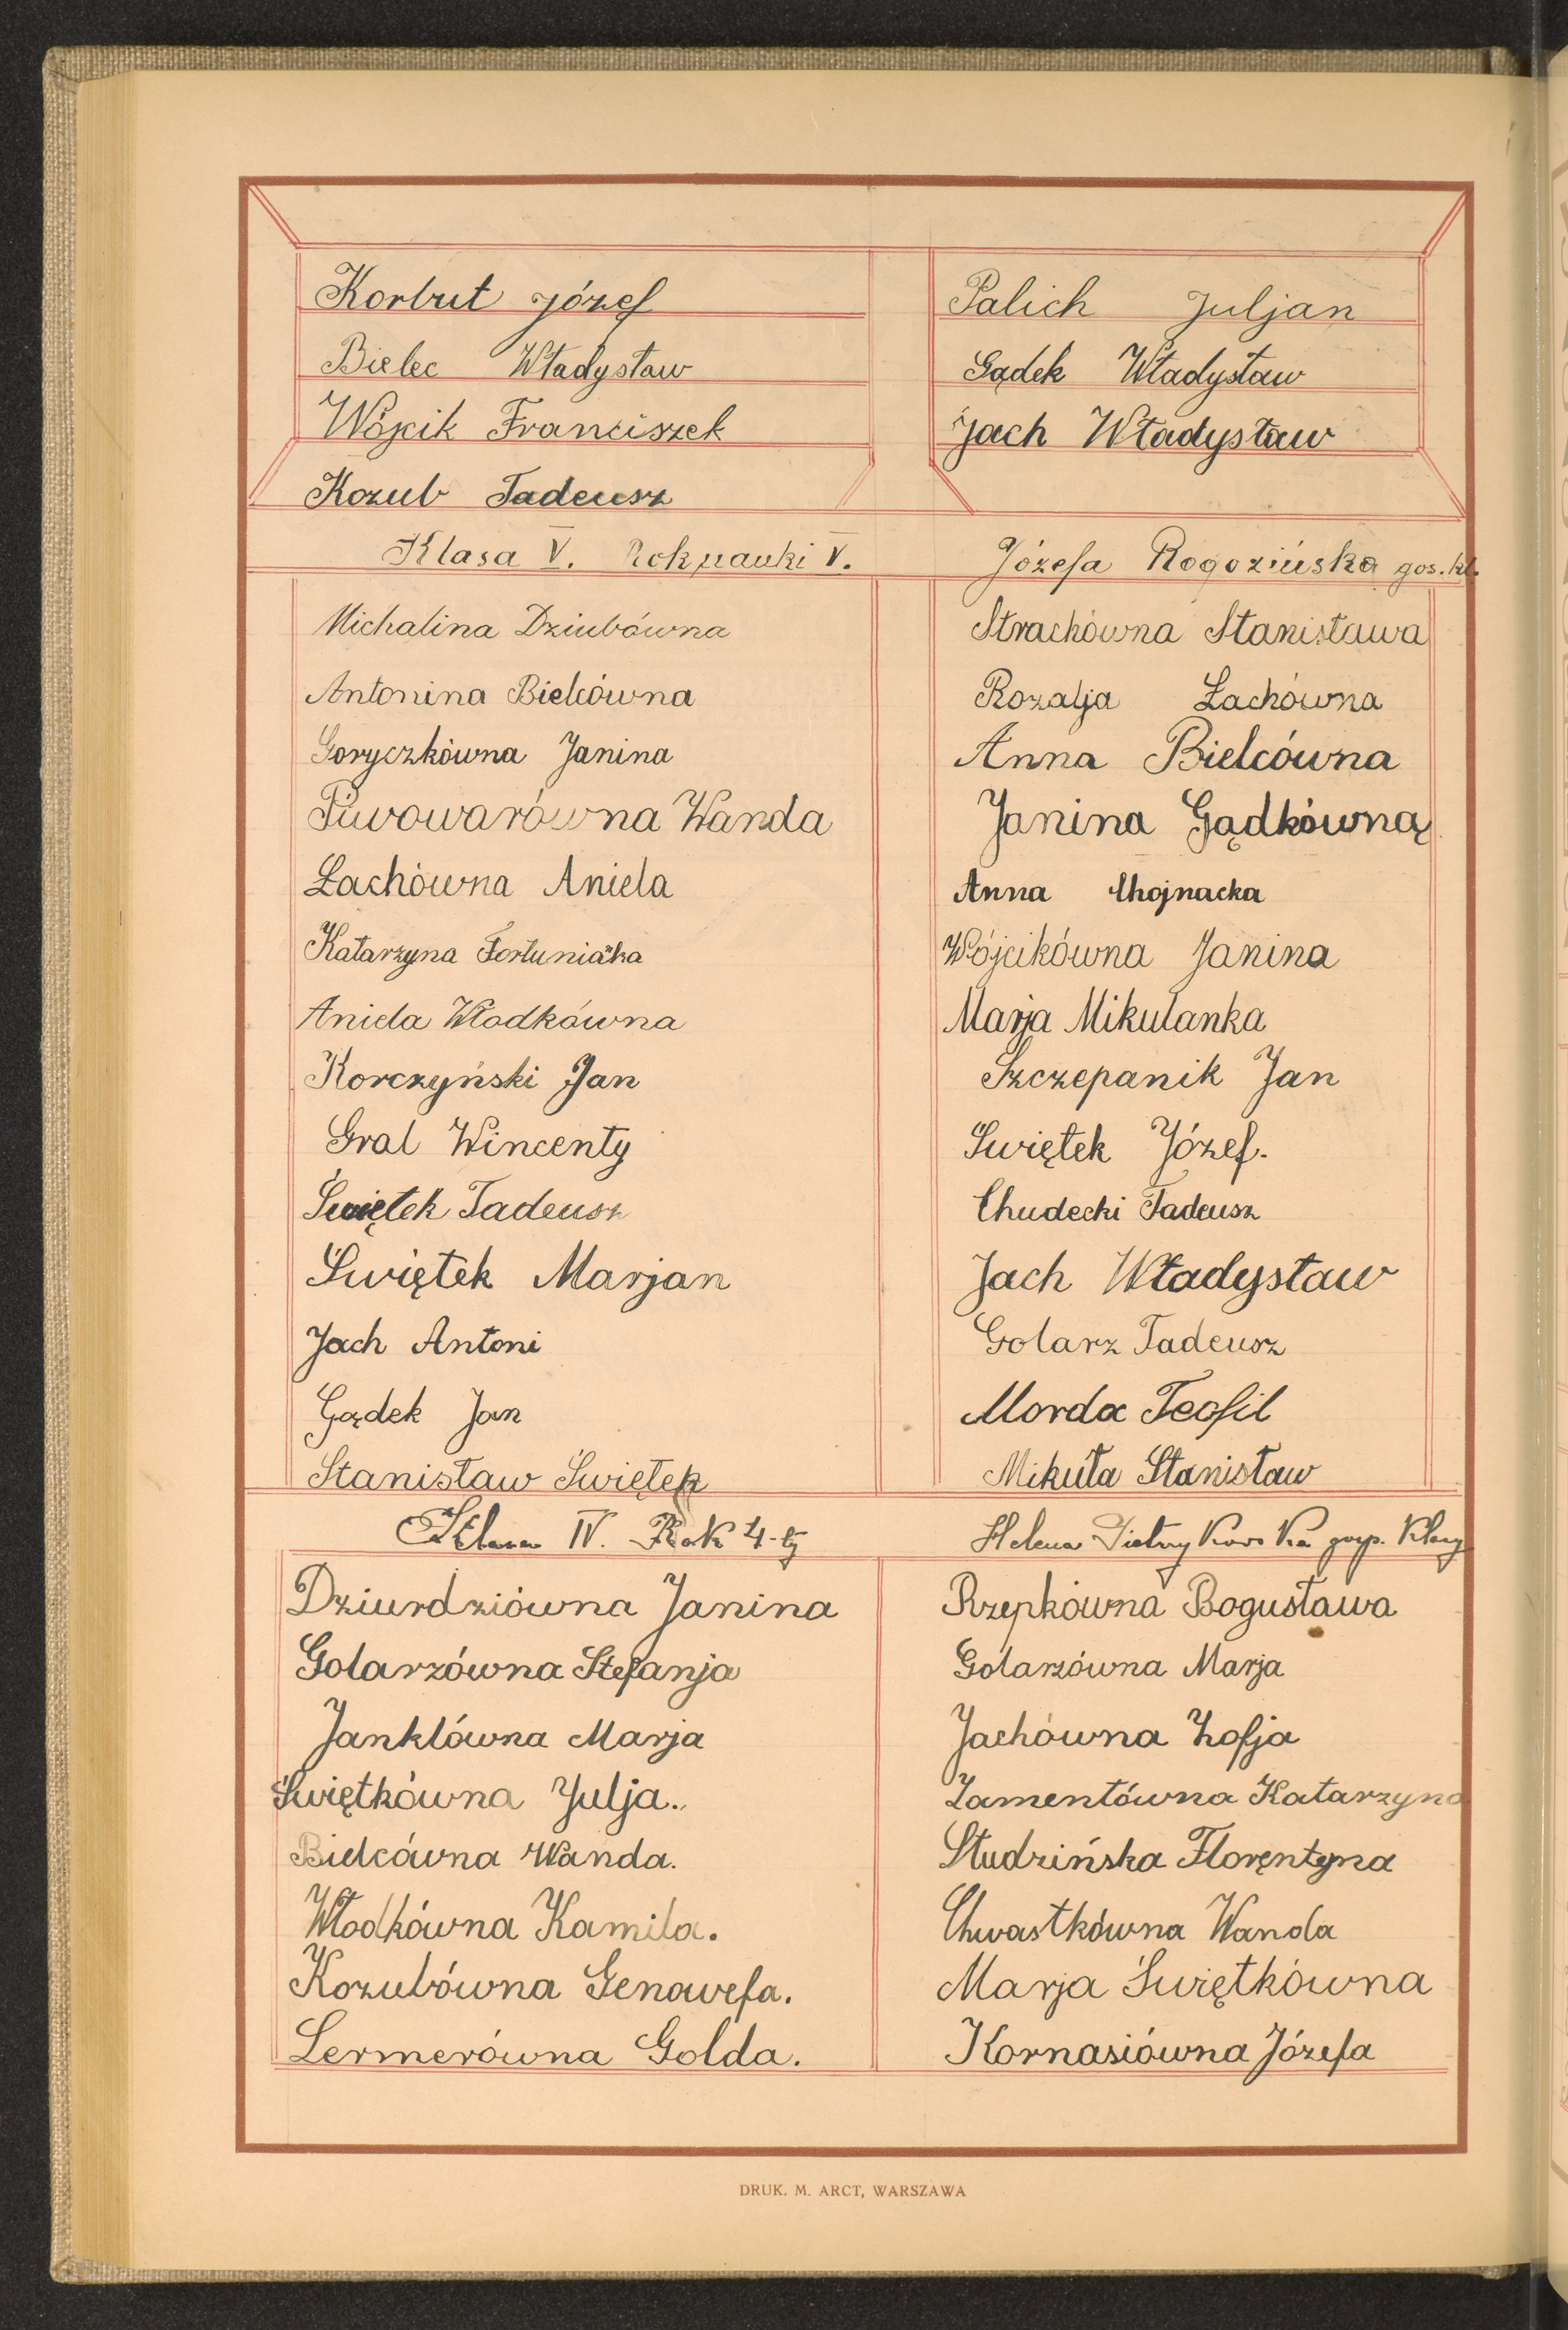 Korbut Józef
Bielec Władysław
Wójcik Franciszek
Kozub Tadeusz
Palich Juljan
Gądek Władysław
Jach Władysław
Klasa V. Rok nauki V.
Józefa Rogozińska gos. kl.
Michalina Dziubówna
Antonina Bielcówna
Goryczkówna Janina
Piwowarówna Wanda
Łachówna Aniela
Katarzyna
Aniela Włodkówna
Korczyński Jan
Gral Wincenty
Świętek Tadeusz
Świętek Marjan
Jach Antoni
Gądek Jan
Stanisław Świętek
Strachówna Stanisława
Rozalja Łachówna
Anna Bielcówna
Janina Gądkówną
Anna Chojnacka
Wójcikówna Janina
Marja Mikulanka
Szczepanik Jan
Świętek Józef.
Chudecki Tadeusz
Jach Władysław
Golarz Tadeusz
Morda Teofil
Mikuła Stanisław
Klasa IV. Rok 4-ty
Helena gosp. klasy
Dziurdziówna Janina
Golarzówna Stefanja
Janklówna Marja
Świętkówna Julja.
Bielcówna Wanda.
Włodkówna Kamila.
Kozubówna Genowefa.
Lermerówna Golda.
Rzepkówna Bogusława
Golarzówna Marja
Jachówna Zofja
Lamentówna Katarzyna
Studzińska Florentyna
Chwastkówna Wanda
Marja Świętkówna
Kornasiówna Józefa
DRUK. M. ARCT, WARSZAWA